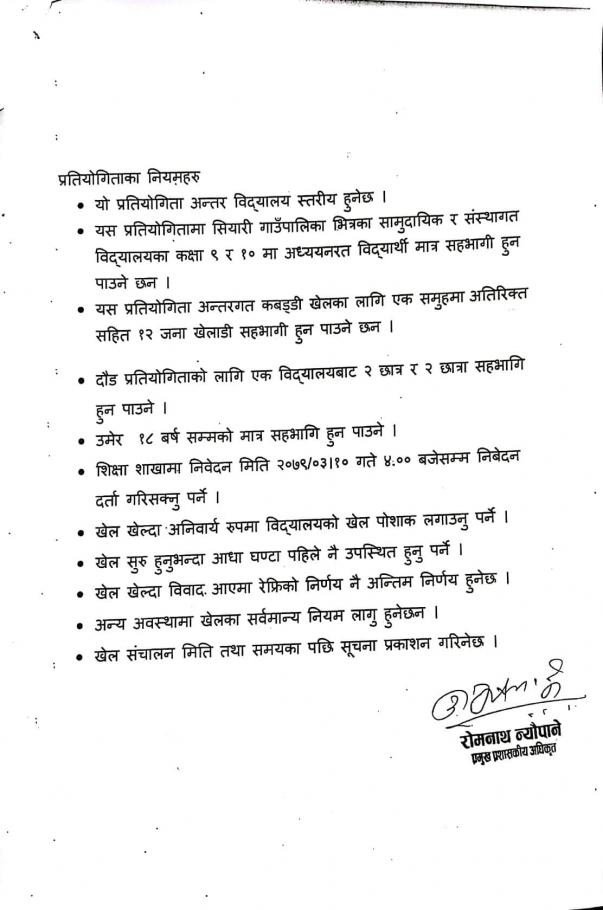 प्रतियोगिताका नियमहरु
• यो प्रतियोगिता अन्तर विद्यालय स्तरीय हुनेछ ।
• यस प्रतियोगितामा सियारी गाउँपालिका भित्रका सामुदायिक र संस्थागत
विद्यालयका कक्षा ९ र १० मा अध्ययनरत विद्यार्थी मात्र सहभागी हुन
पाउने छन ।
• यस प्रतियोगिता अन्तरगत कबड्डी खेलका लागि एक समुहमा अतिरिक्त
सहित १२ जना खेलाडी सहभागी हुन पाउने छन ।
• दौड प्रतियोगिताको लागि एक विद्यालयबाट २ छात्र र २ छात्रा सहभागि
हुन पाउने ।
• उमेर १८ बर्ष सम्मको मात्र सहभागि हुन पाउने ।
• शिक्षा शाखामा निवेदन मिति २०७९/०३।१० गते ४.०० बजेसम्म निबेदन
दर्ता गरिसक्नु पर्ने ।
• खेल खेल्दा अनिवार्य रुपमा विद्यालयको खेल पोशाक लगाउनु पर्ने ।
• खेल सुरु हुनुभन्दा आधा घण्टा पहिले नै उपस्थित हुनु पर्ने ।
• खेल खेल्दा विवाद आएमा रेफ्रिको निर्णय नै अन्तिम निर्णय हुनेछ ।
• अन्य अवस्थामा खेलका सर्वमान्य नियम लागु हुनेछन ।
• खेल संचालन मिति तथा समयका पछि सूचना प्रकाशन गरिनेछ ।
रोमनाथ न्यौपाने
प्रमुख प्रशासकीय अधिकृत